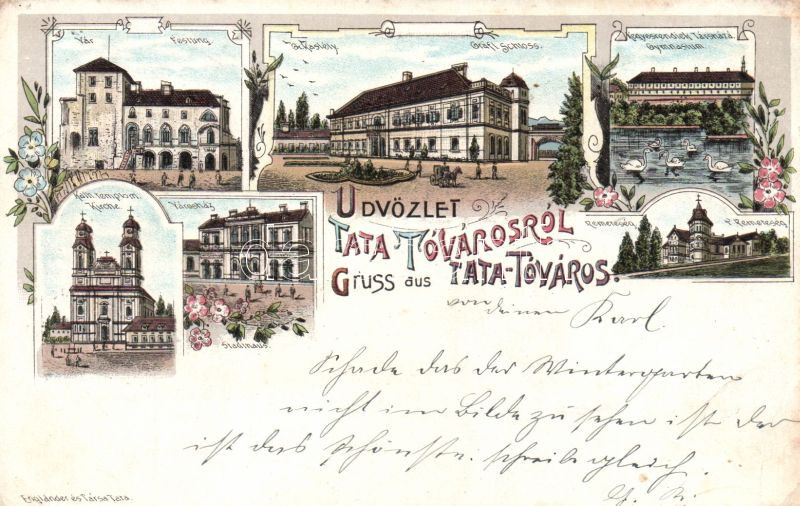 Vár Festung.
Gr. Kastély Gräfl. Schloss.
Kegyesrendiek Társháza
Gymnasium.
Kath. templom.
Kirche.
Városház
Stadthaus.
Remeteség
ÜDVÖZLET
TATA-TÓVÁROSRÓL
GRUSS aus TATA-TÓVÁROS.
von deinem Karl.
Schade das der Wintergarten
nicht im Bilde zu sehen ist der
ist das schönste. schreibe gleich.
Engländer és Társa Tata.